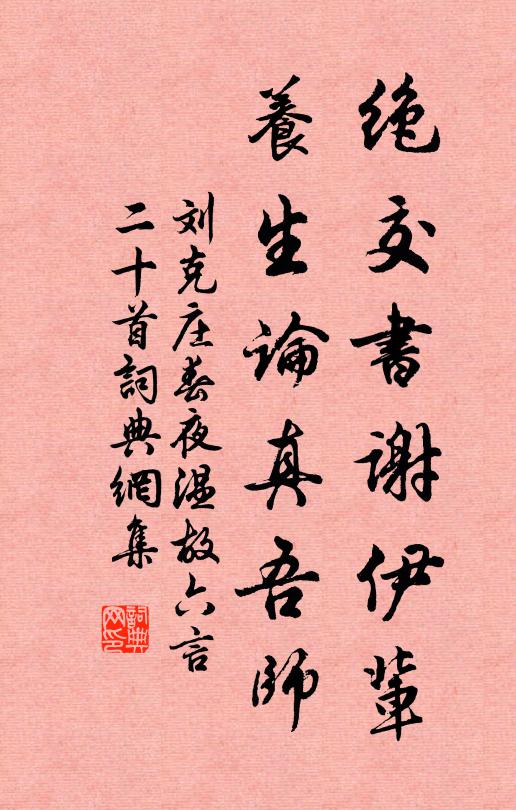 絶交書謝伊輩
養生論真吾師
刘克庄春夜温故六言
二十首詞典網集
詞典网印